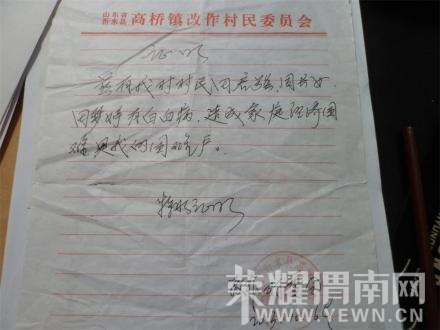 山东省
沂水县 高桥镇改作村民委员会
证明
兹有我村村民周
因患 白血病,造成家庭经济困
难是我村困难户。
特此证明
荣耀渭南网
WWW.YEWN.CN